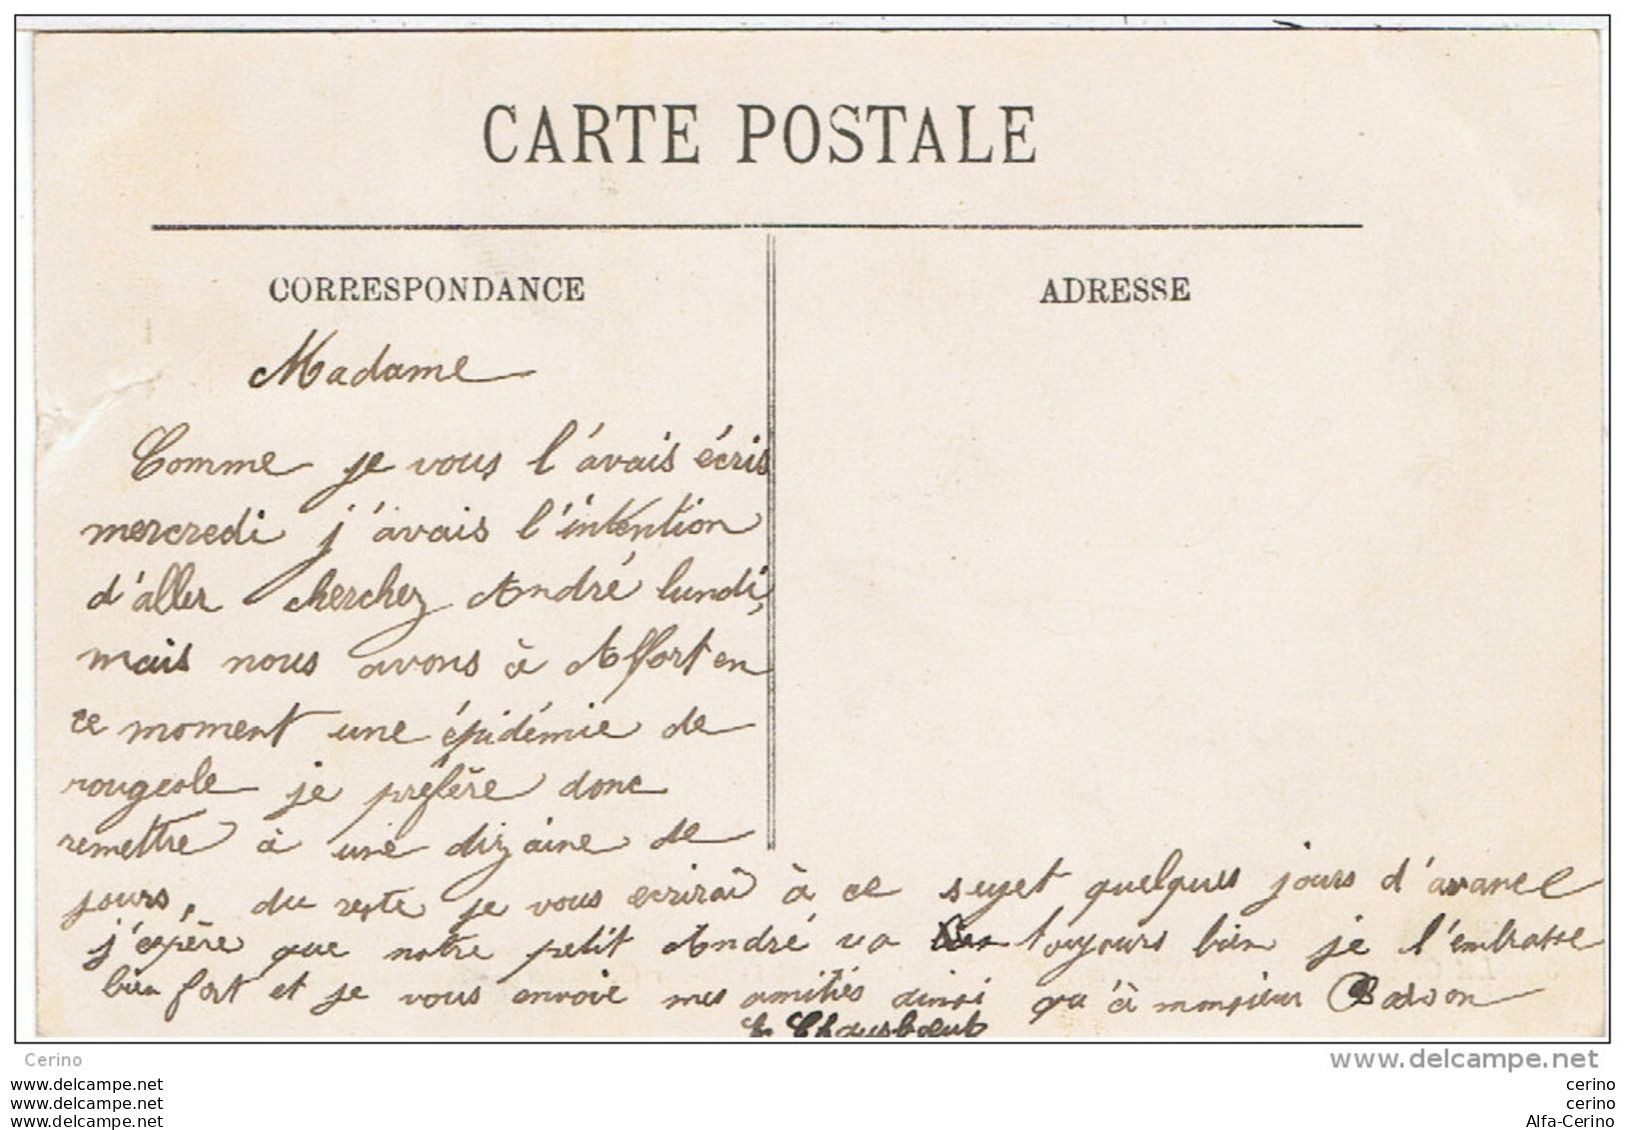 CARTE POSTALE
CORRESPONDANCE
ADRESSE
Madame
Comme je vous l'avais écris
mercredi j'avais l'intention
d'aller cherchez André lundi,
mais nous avons à Alfort en
ce moment une épidémie de
rougeole je préfère donc
remettre à une dizaine de
jours, du reste je vous ecrirai à ce sujet quelques jours d'avance
j'espère que notre petit André va toujours bien je l'embrasse
bien fort et je vous envoie mes amitiés ainsi qu'à monsieur
Cerino
www.delcampe.net
www.delcampe.net
www.delcampe.net
www.delcampe.net
cerino
cerino
Alfa-Cerino